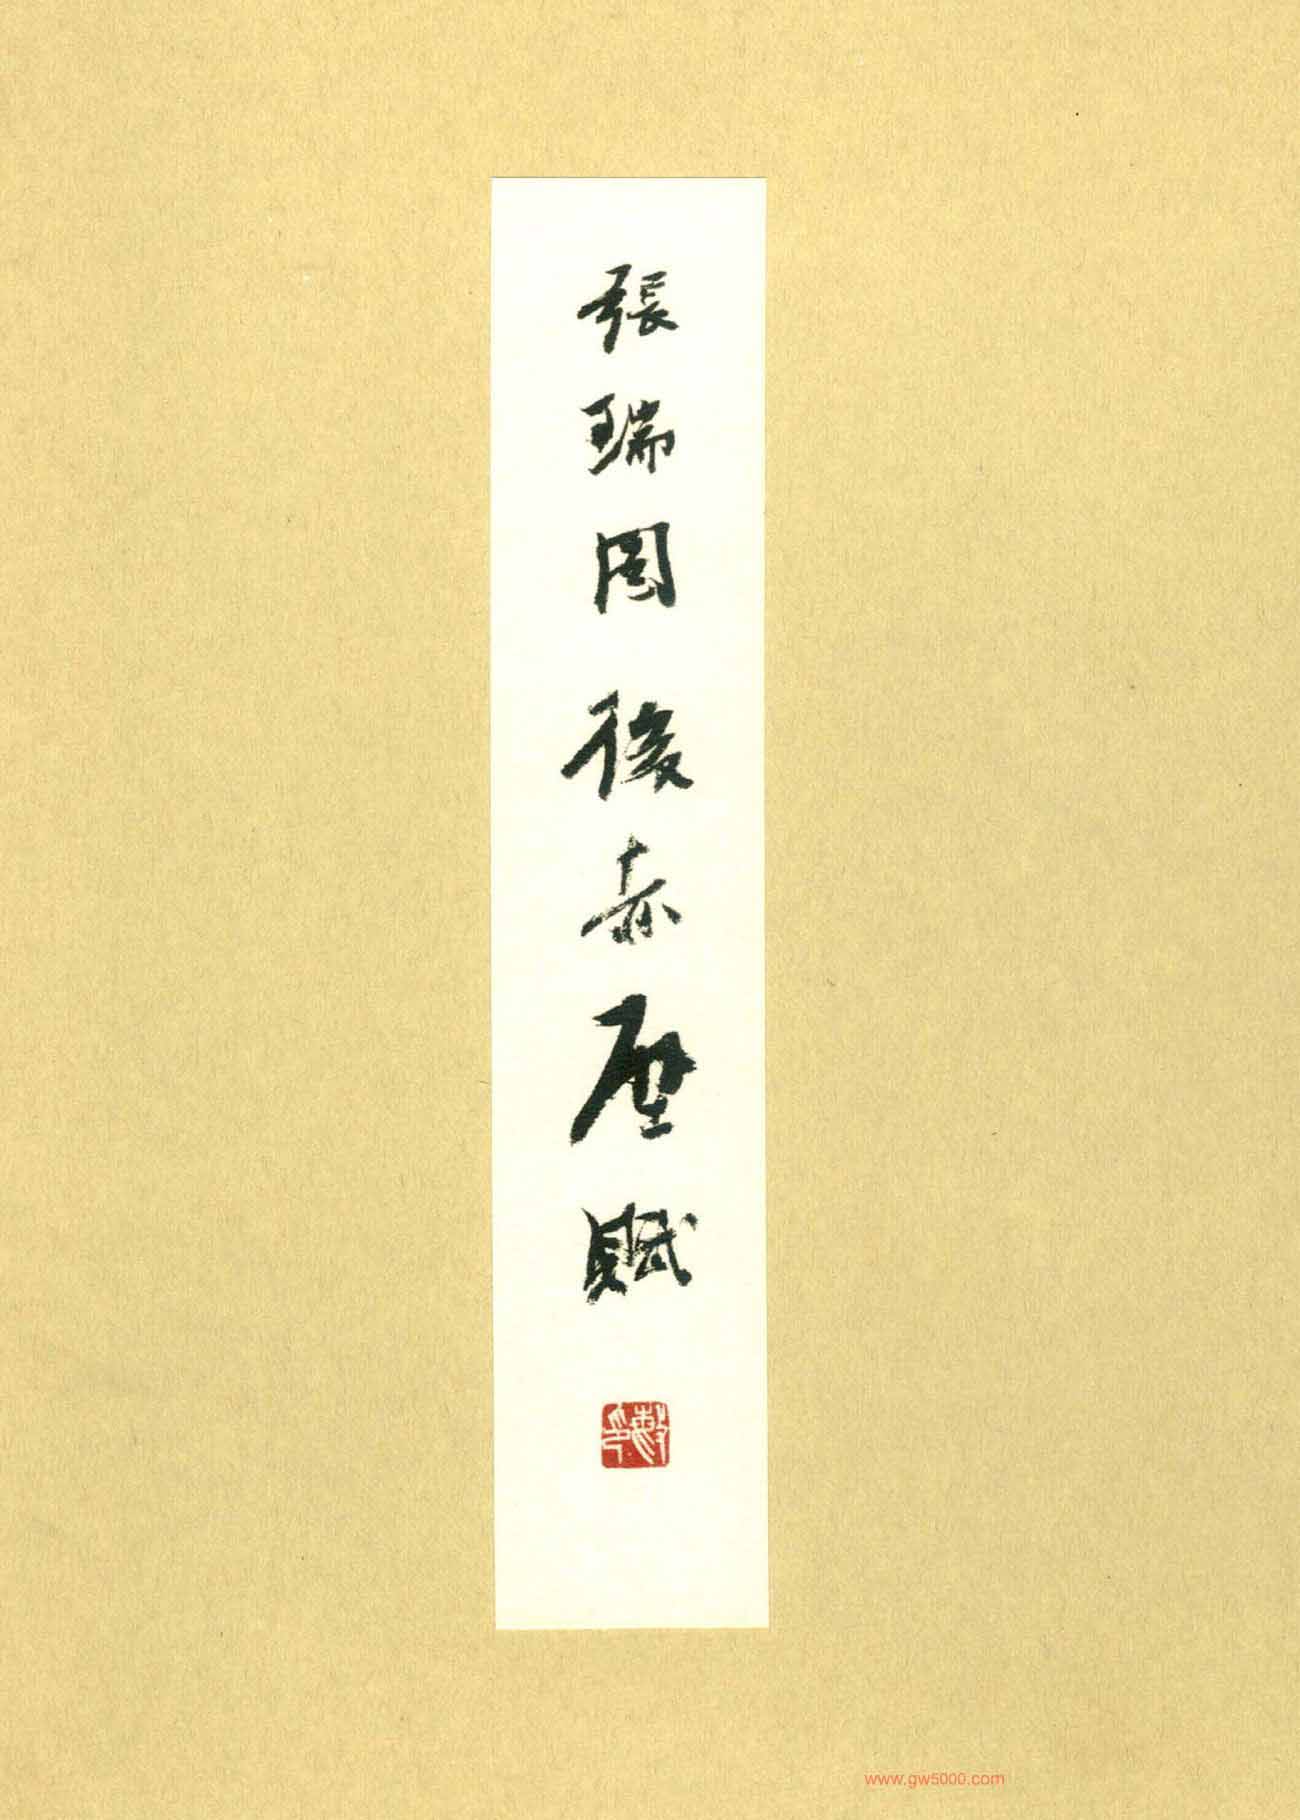 張瑞圖後赤壁賦
www.gw5000.com